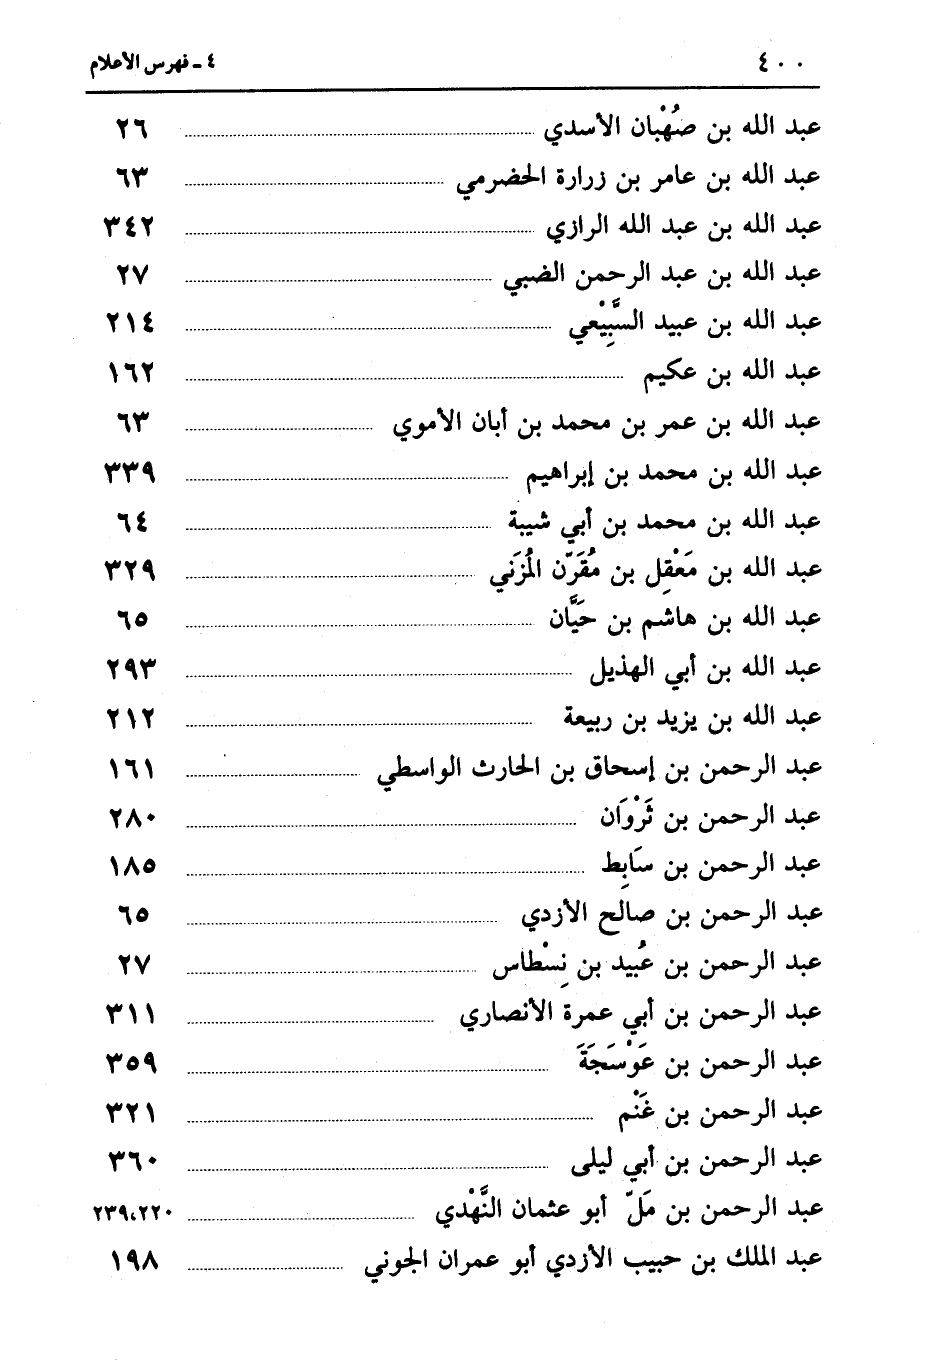 ٤٠٠ ٤ ـ فهرس الأعلام
عبد الله بن صُهْبان الأسدي ٢٦
عبد الله بن عامر بن زرارة الحضرمي ٦٣
عبد الله بن عبد الله الرازي ٣٤٢
عبد الله بن عبد الرحمن الضبي ٢٧
عبد الله بن عبيد السَّبِيْعي ٢١٤
عبد الله بن عكيم ١٦٢
عبد الله بن عمر بن محمد بن أبان الأموي ٦٣
عبد الله بن محمد بن إبراهيم ٣٣٩
عبد الله بن محمد بن أبي شيبة ٦٤
عبد الله بن مَعْقِل بن مُقَرّن المُزَني ٣٢٩
عبد الله بن هاشم بن حَيَّان ٦٥
عبد الله بن أبي الهذيل ٢٩٣
عبد الله بن يزيد بن ربيعة ٢١٢
عبد الرحمن بن إسحاق بن الحارث الواسطي ١٦١
عبد الرحمن بن ثَرْوَان ٢٨٠
عبد الرحمن بن سَابِط ١٨٥
عبد الرحمن بن صالح الأزدي ٦٥
عبد الرحمن بن عُبيد بن نِسْطاس ٢٧
عبد الرحمن بن أبي عمرة الأنصاري ٣١١
عبد الرحمن بن عَوْسَجَةَ ٣٥٩
عبد الرحمن بن غَنْم ٣٢١
عبد الرحمن بن أبي ليلى ٣٦٠
عبد الرحمن بن مَلّ أبو عثمان النَّهْدي ٢٣٩،٢٢٠
عبد الملك بن حبيب الأزدي أبو عمران الجوني ١٩٨